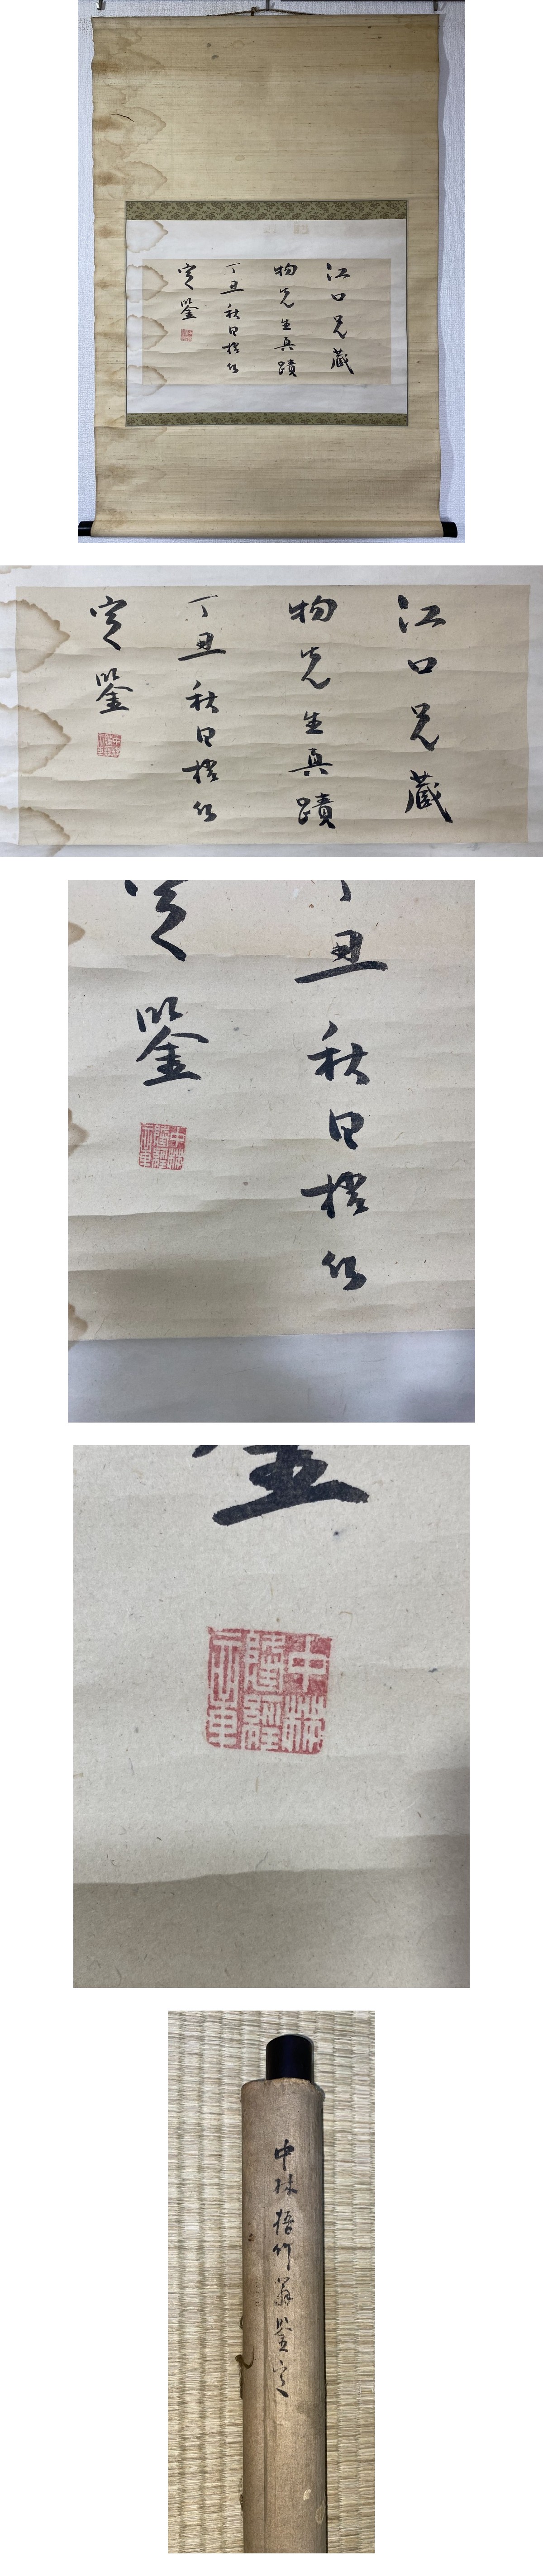 江口兄蔵
物先生真蹟
丁丑秋日梧竹
定鑒
江口兄蔵
物先生真蹟
丁丑秋日梧竹
定鑒
丑秋日梧竹
定鑒
中林
隆經
中林
隆經
中林梧竹翁鑒定